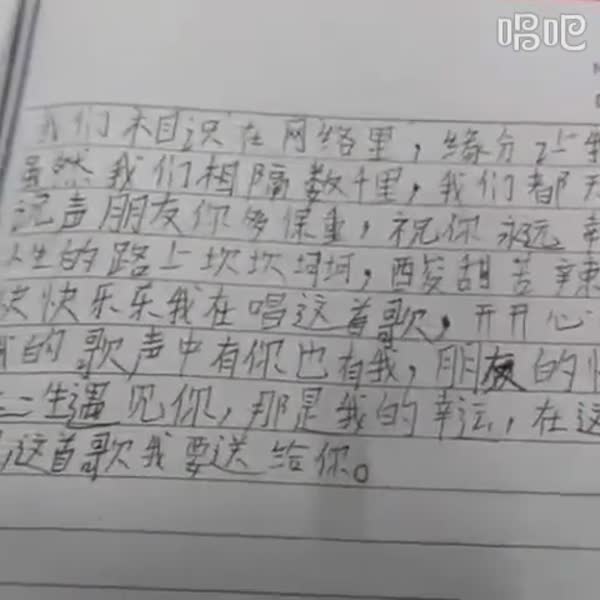 唱吧
我们相识在网络里，缘分让
虽然我们相隔数千里，我们都
说声朋友你多保重，祝你永远幸
人生的路上坎坎坷坷，酸甜苦辣
快快乐乐我在唱这首歌，开开心
我的歌声中有你也有我，朋友的
这一生遇见你，那是我的幸运，在这
，这首歌我要送给你。